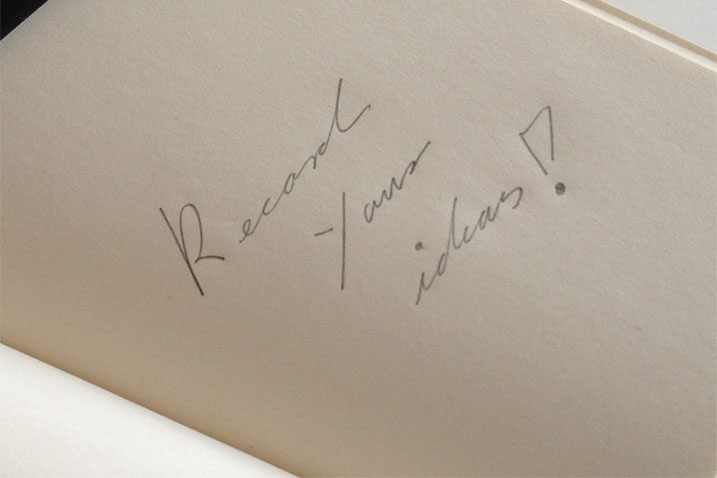 Record
Your
ideas!